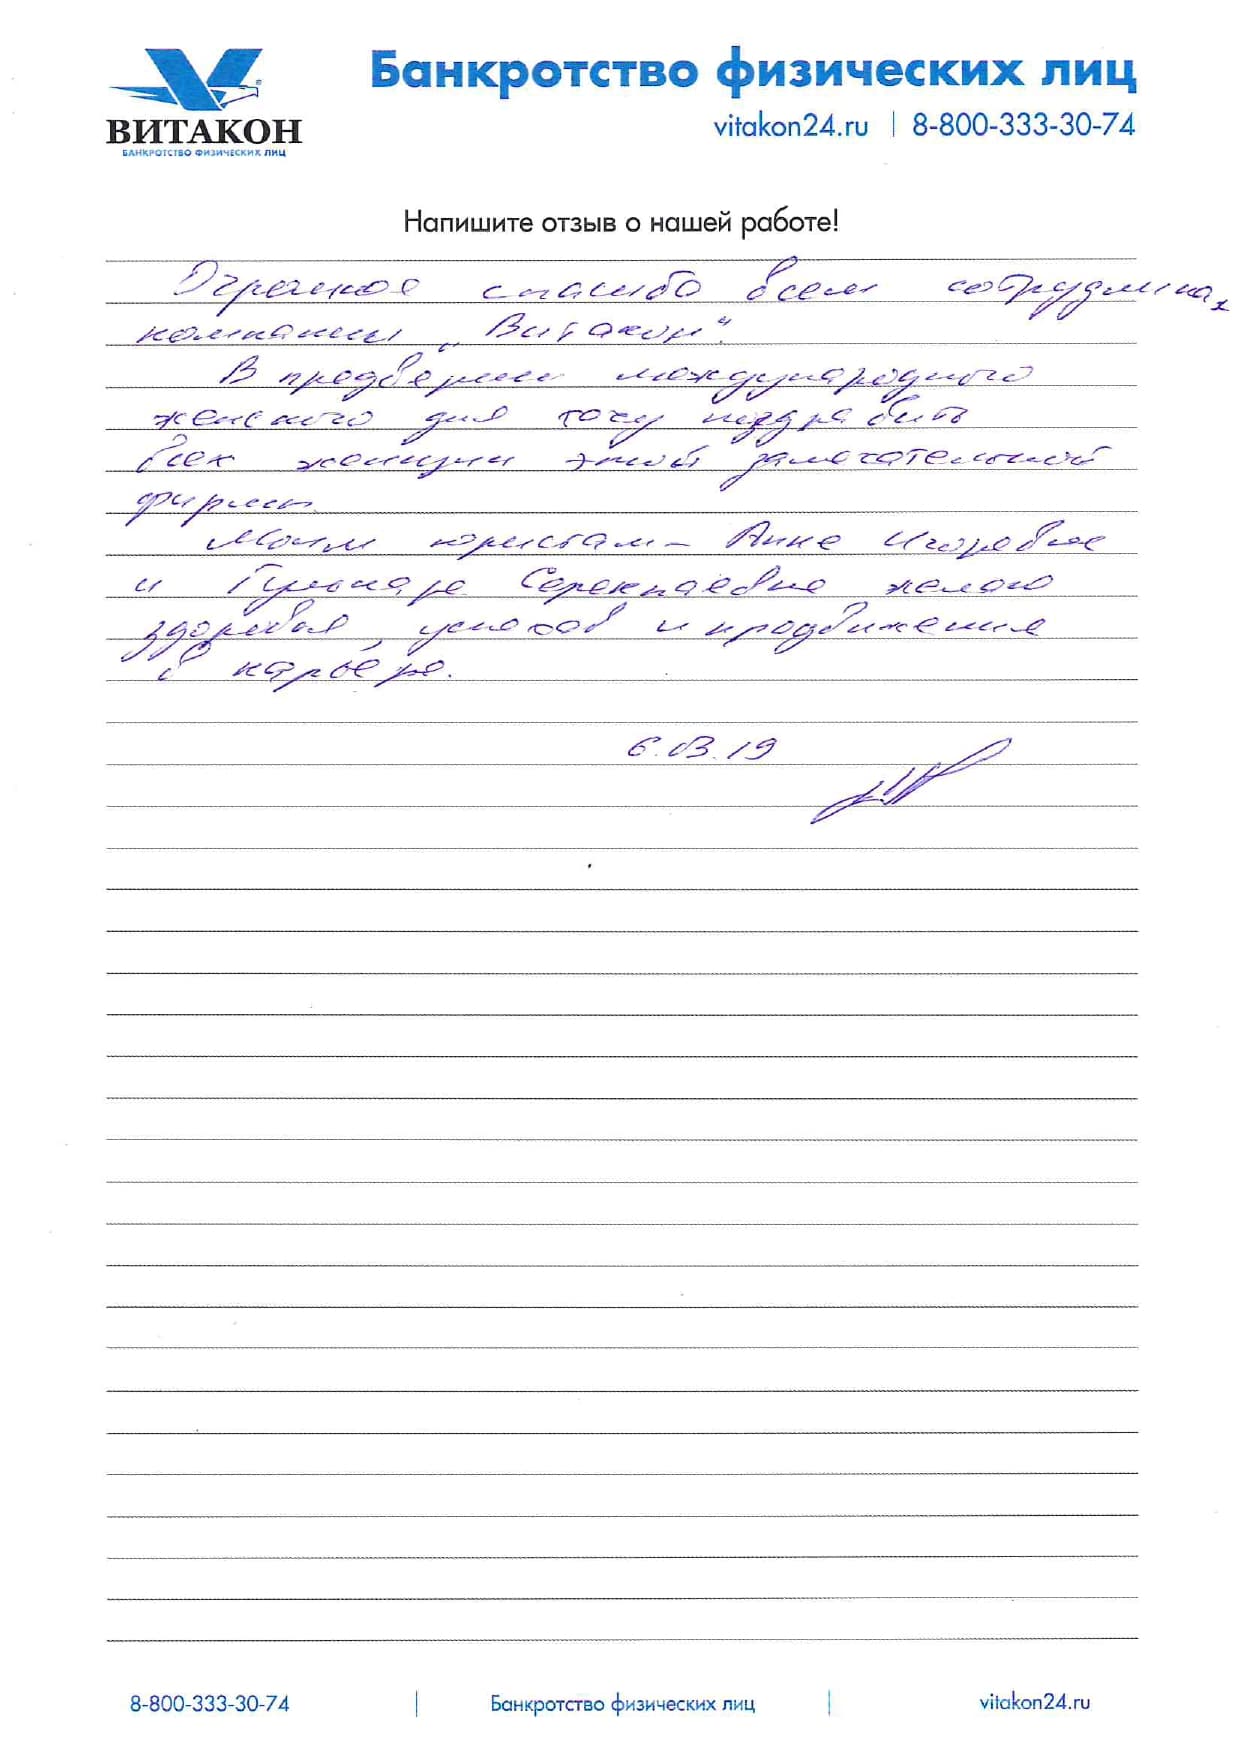 ВИТАКОН
БАНКРОТСТВО ФИЗИЧЕСКИХ ЛИЦ
Банкротство физических лиц
vitakon24.ru | 8-800-333-30-74
Напишите отзыв о нашей работе!
Огромное спасибо всем сотрудникам
компании „Витакон“.
В преддверии международного
женского дня хочу поздравить
всех женщин этой замечательной
фирмы.
Моим юристам – Анне Игоревне
и Гульнаре Серекпаевне желаю
здоровья, успехов и продвижения
в карьере.
6.03.19
8-800-333-30-74 | Банкротство физических лиц | vitakon24.ru